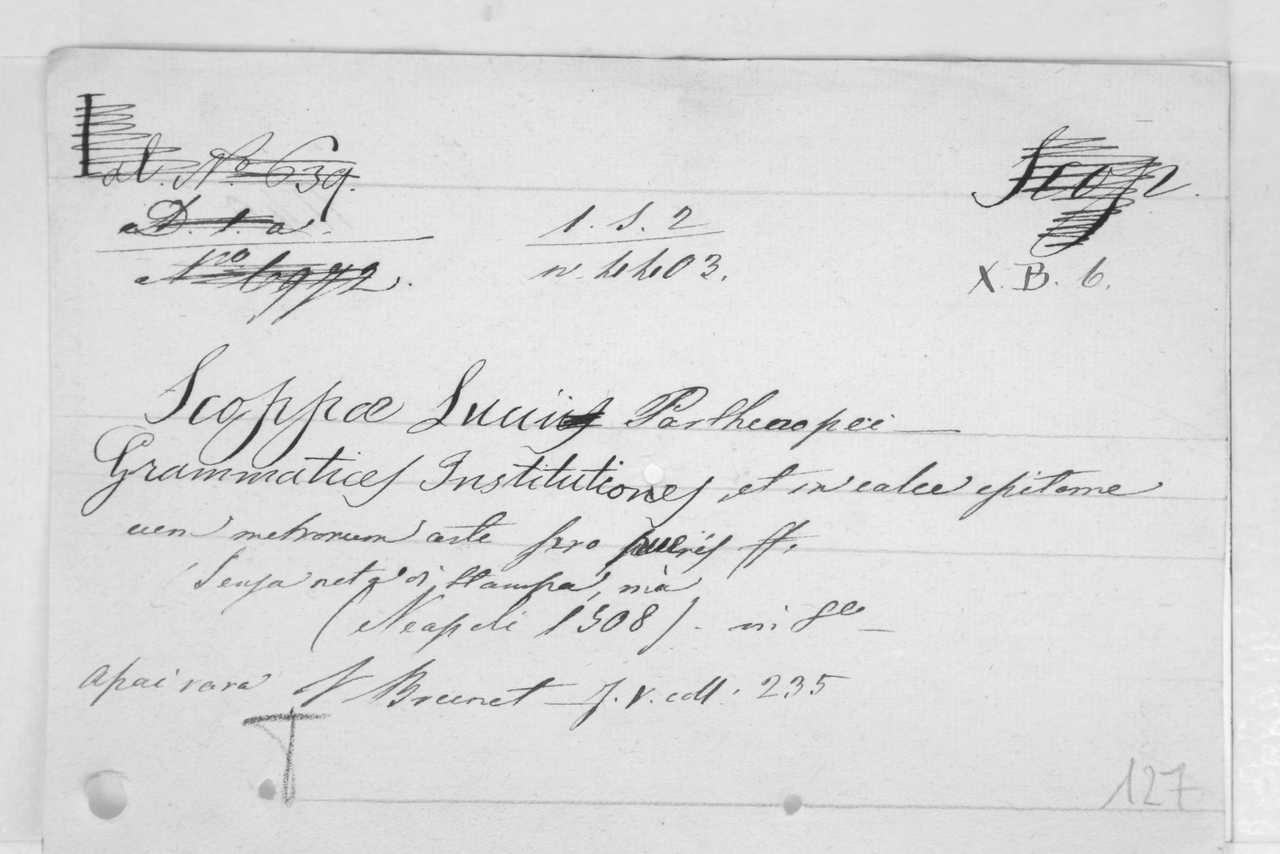 Lat. No. 639.
D. 1. a.
Nro 6972.
1. S. 2
n. 4403.
Scop.
X. B. 6.
Scoppæ Lucii Parthenopei
Grammatices Institutiones, et in calce epitome
cum metrorum arte pro pueris ff.
Senza nota di stampa, mà
(Neapoli 1508). in 8vo
assai rara V Brunet T. V. coll. 235
T
127